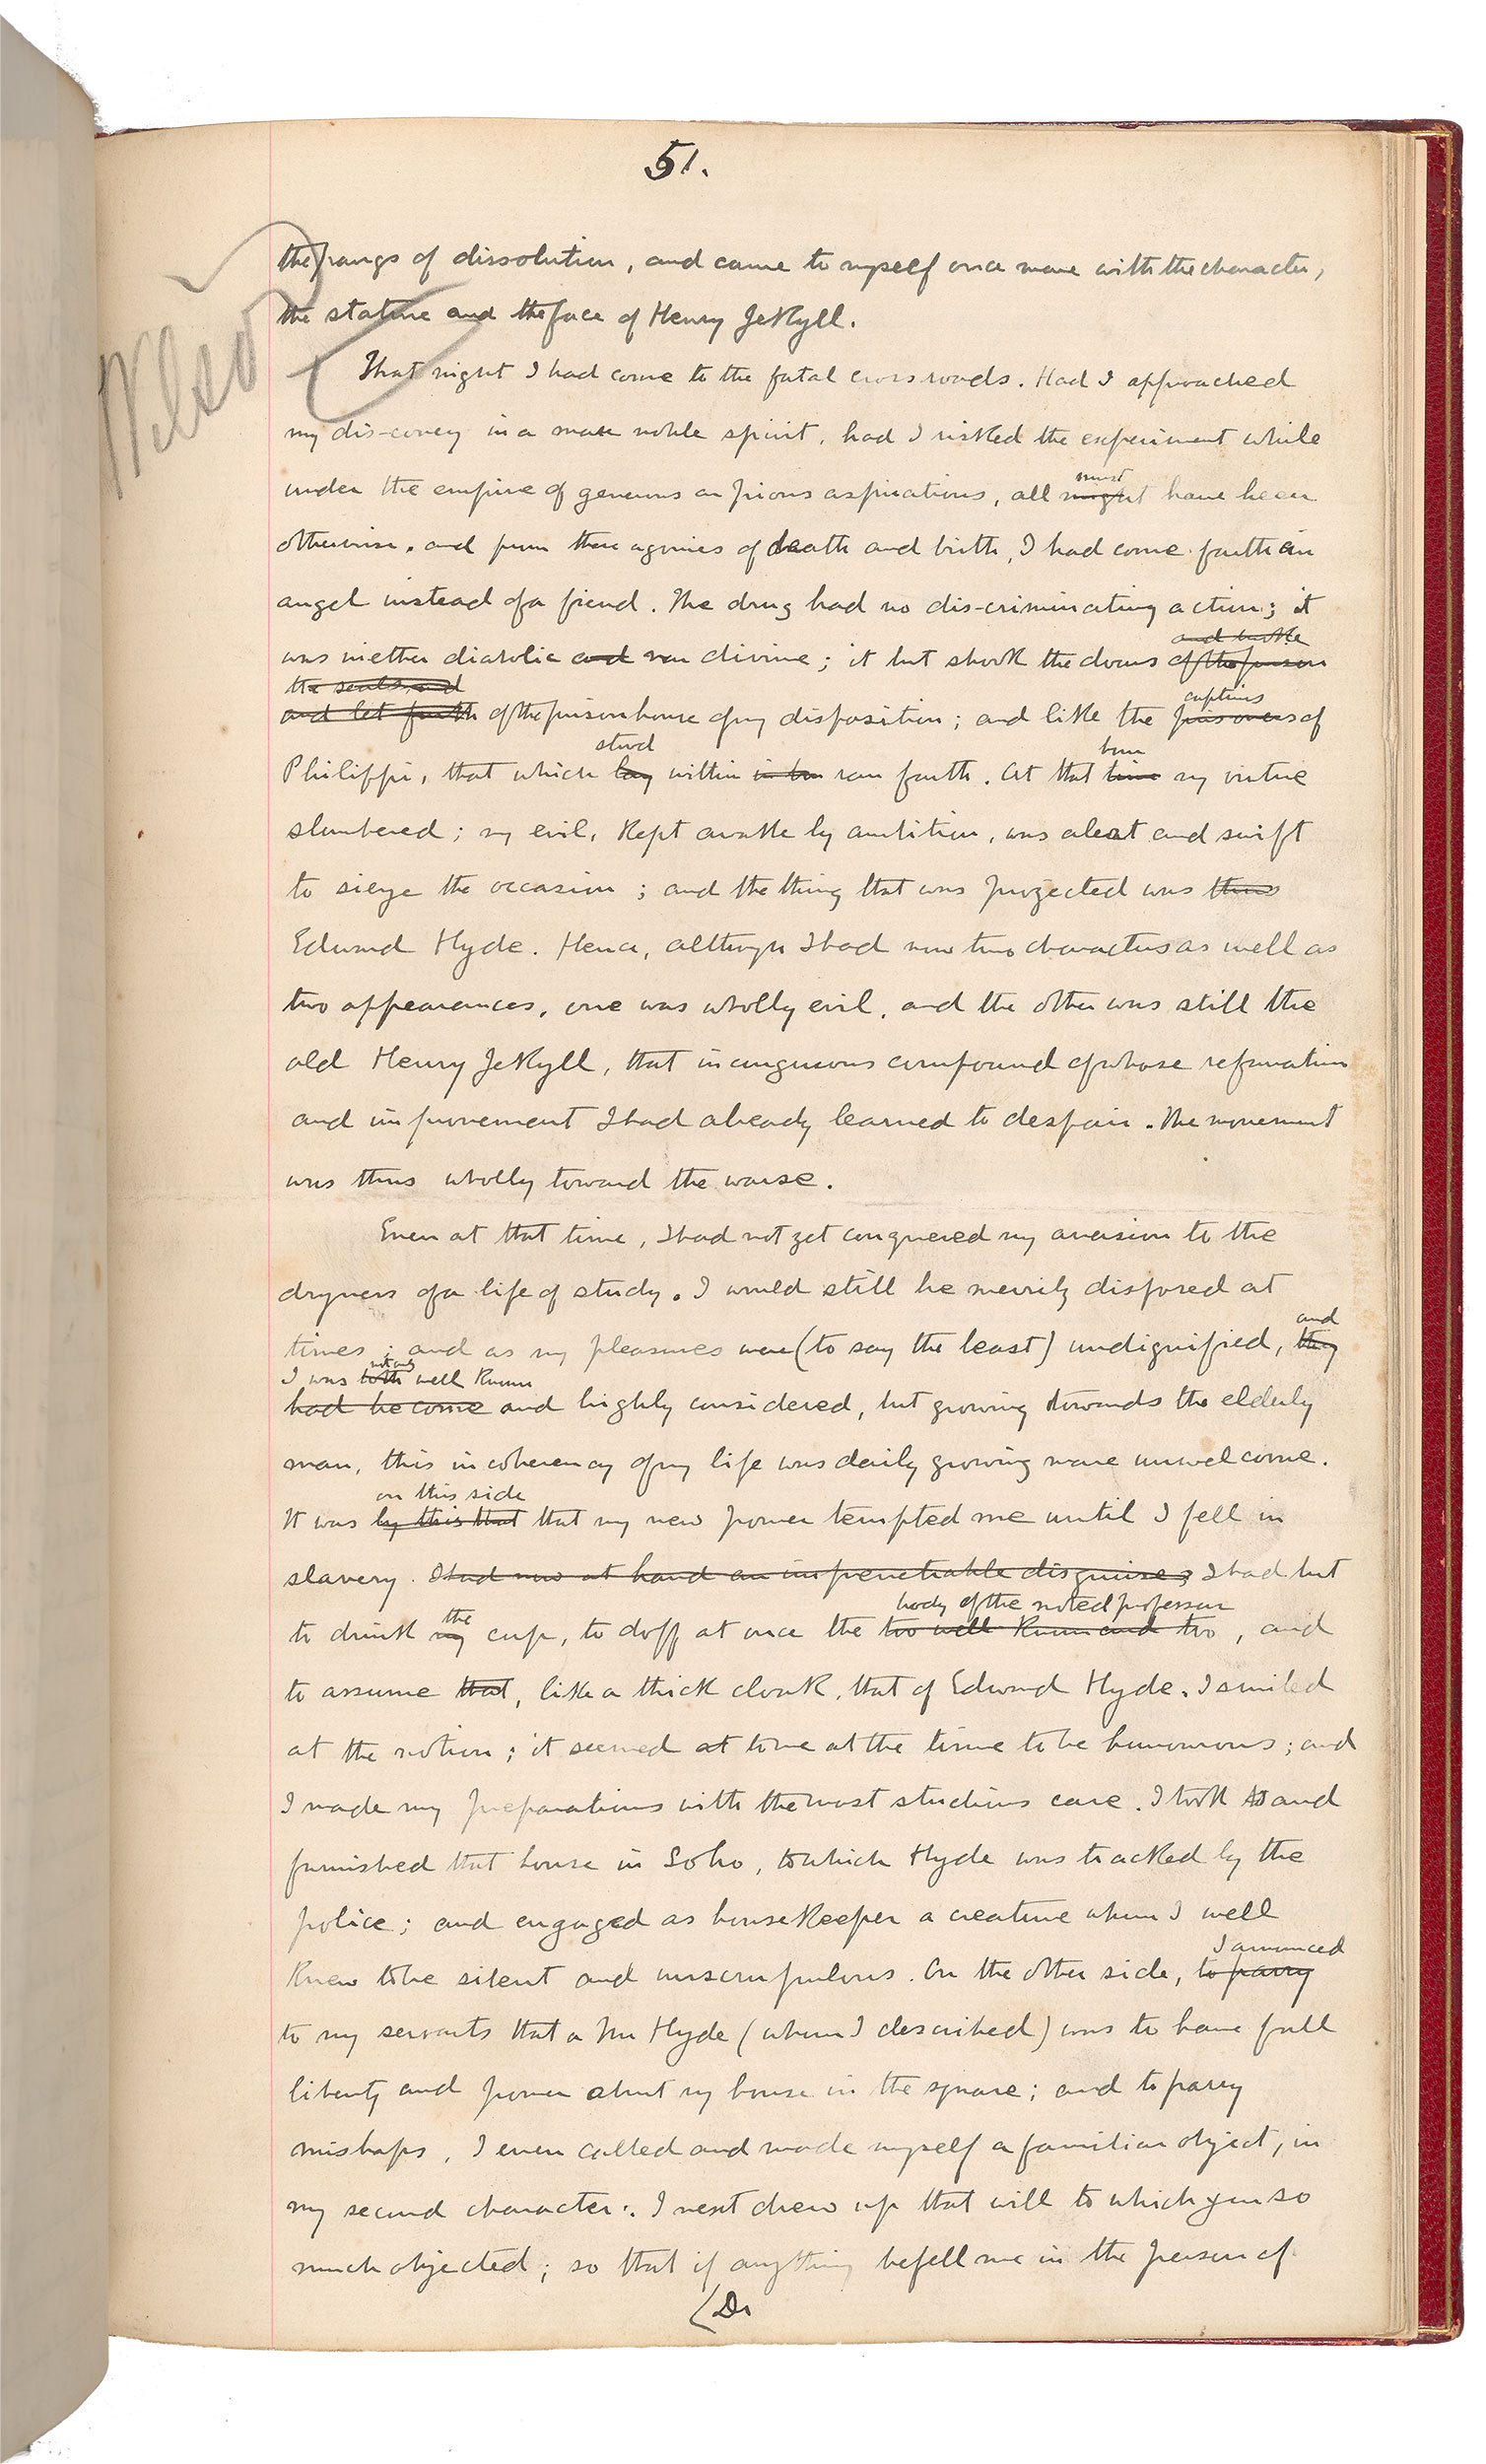 51.
Wilson
the pangs of dissolution, and came to myself once more with the character,
the stature and the face of Henry Jekyll.
That night I had come to the fatal cross roads. Had I approached
my dis-covery in a more noble spirit, had I risked the experiment while
must
under the empire of generous or pious aspirations, all might have been
otherwise. and from these agonies of death and birth, I had come forth an
angel instead of a fiend. The drug had no dis-criminating action; it
and broke
was niether diabolic and nor divine; it but shook the doors of the prison
the seals and
and let forth of the prison house of my disposition; and like the prisoners of
captives
stood
Philippi, that which lay within ran forth. At that time my virtue
slumbered; my evil, kept awake by ambition, was alert and swift
to sieze the occasion; and the thing that was projected was thus
Edward Hyde. Hence, although I had now two characters as well as
two appearances, one was wholly evil, and the other was still the
old Henry Jekyll, that incongruous compound of whose reformation
and improvement I had already learned to despair. The movement
was thus wholly toward the worse.
Even at that time, I had not yet conquered my aversion to the
dryness of a life of study. I would still be merrily disposed at
and
times; and as my pleasures were (to say the least) undignified, they
not only
I was both well known
had become and highly considered, but growing towards the elderly
man, this incoherency of my life was daily growing more unwelcome.
on this side
It was by this that that my new power tempted me until I fell in
slavery. I had now at hand an impenetrable disguise; I had but
the
body of the noted professor
to drink my cup, to doff at once the too well known and too, and
to assume that, like a thick cloak, that of Edward Hyde. I smiled
at the notion; it seemed at to me at the time to be humourous; and
I made my preparations with the most studious care. I took and
furnished that house in Soho, to which Hyde was tracked by the
police; and engaged as housekeeper a creature whom I well
I announced
knew to be silent and unscrupulous. On the other side, to parry
to my servants that a Mr Hyde (whom I described) was to have full
liberty and power about my house in the square; and to parry
mishaps, I even called and made myself a familiar object, in
my second character. I next drew up that will to which you so
much objected; so that if anything befell me in the person of
(Dr